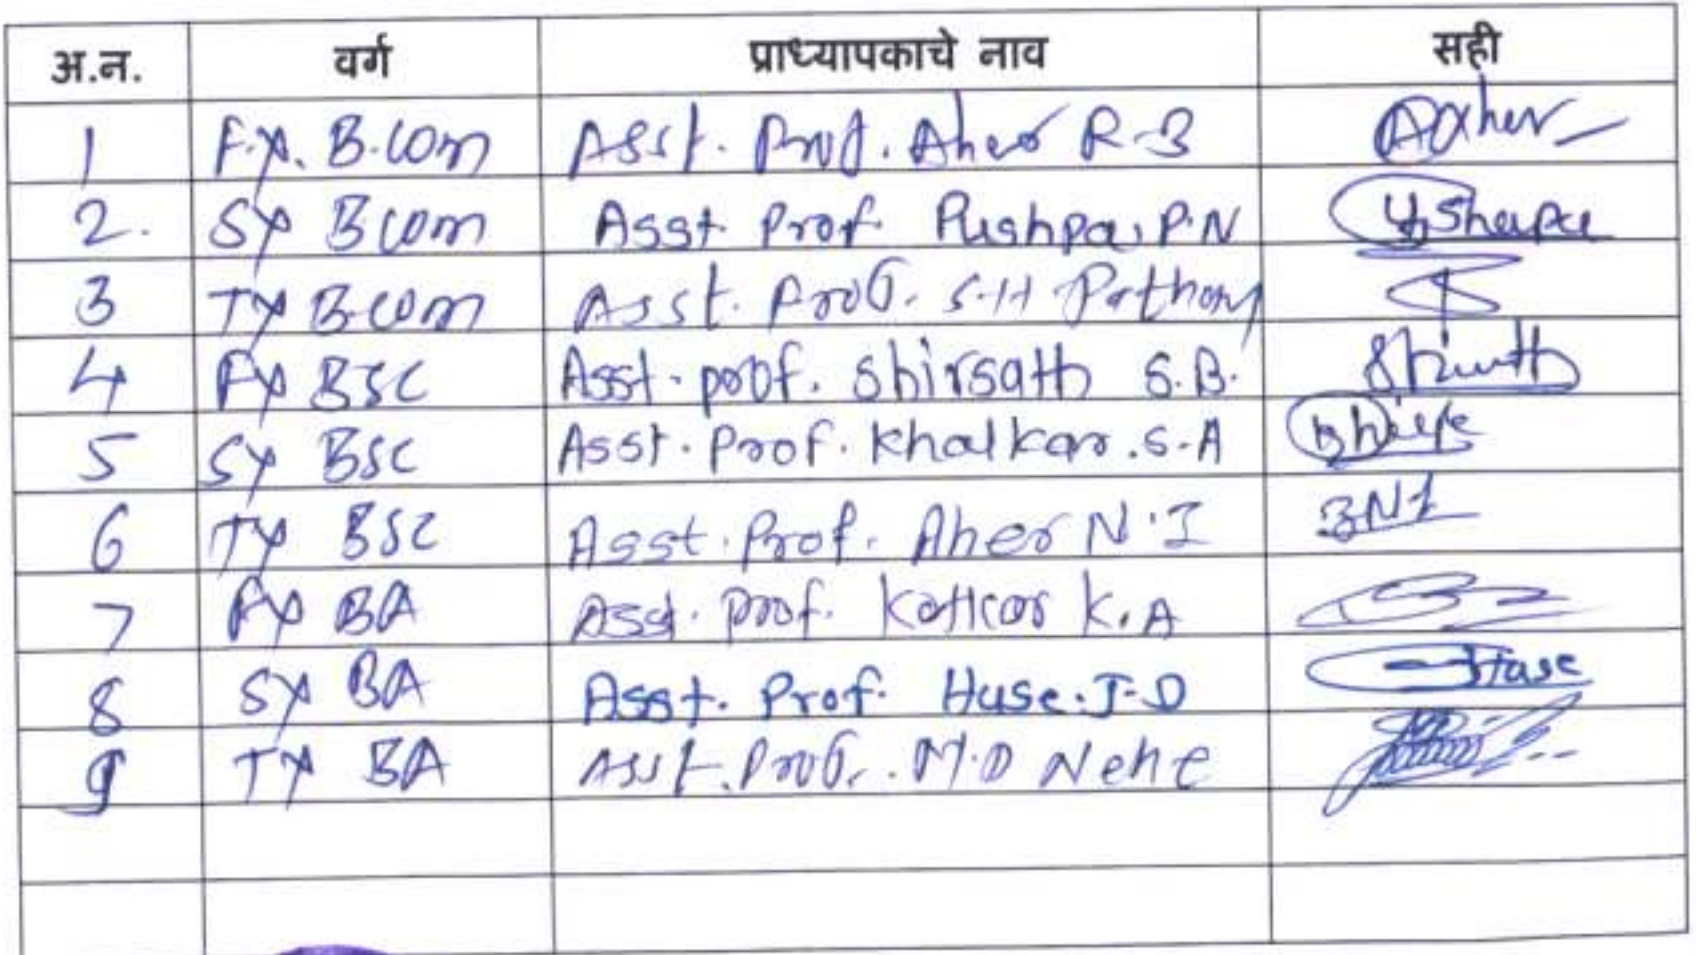 अ.न. वर्ग प्राध्यापकाचे नाव सही
1 F.Y. B.com Asst. Prof. Aher R.B Aaher
2. SY Bcom Asst Prof. Pushpa. P.N
3 TY B.com Asst. Prof. S.H Pathan
4 FY BSC Asst. prof. Shirsath S.B.
5 SY BSC Asst. Prof. Khalkar .S.A
6 TY BSC Asst. Prof. Aher N.I
7 FY BA Asst. prof. K.A
8 SY BA Asst. Prof. Hase. J.D Hase
9 TY BA Asst. Prof. M.D Nehe